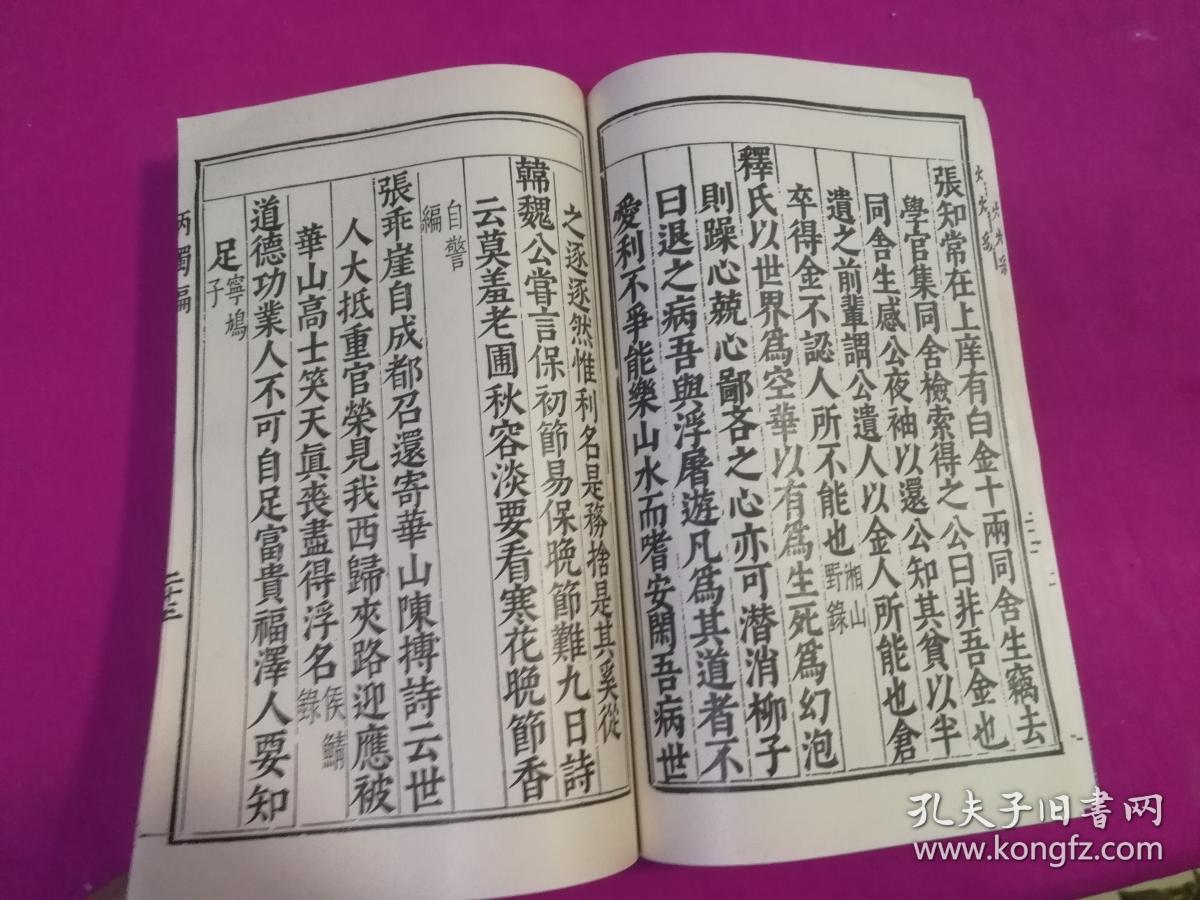 張知常在上庠有白金十兩同舍生竊去
學官集同舍檢索得之公曰非吾金也
同舍生感公夜袖以還公知其貧以半
遺之前輩謂公遺人以金人所能也倉
卒得金不認人所不能也湘山野錄
釋氏以世界爲空華以有爲生死爲幻泡
則躁心兢心鄙吝之心亦可潛消柳子
曰退之病吾與浮屠遊凡爲其道者不
愛利不爭能樂山水而嗜安閑吾病世
之逐逐然惟利名是務捨是其奚從
韓魏公嘗言保初節易保晚節難九日詩
云莫羞老圃秋容淡要看寒花晚節香
自警編
張乖崖自成都召還寄華山陳摶詩云世
人大抵重官榮見我西歸夾路迎應被
華山高士笑天眞喪盡得浮名侯鯖錄
道德功業人不可自足富貴福澤人要知
足寧鳩子
炳燭編
二十三
孔夫子旧書网
www.kongfz.com